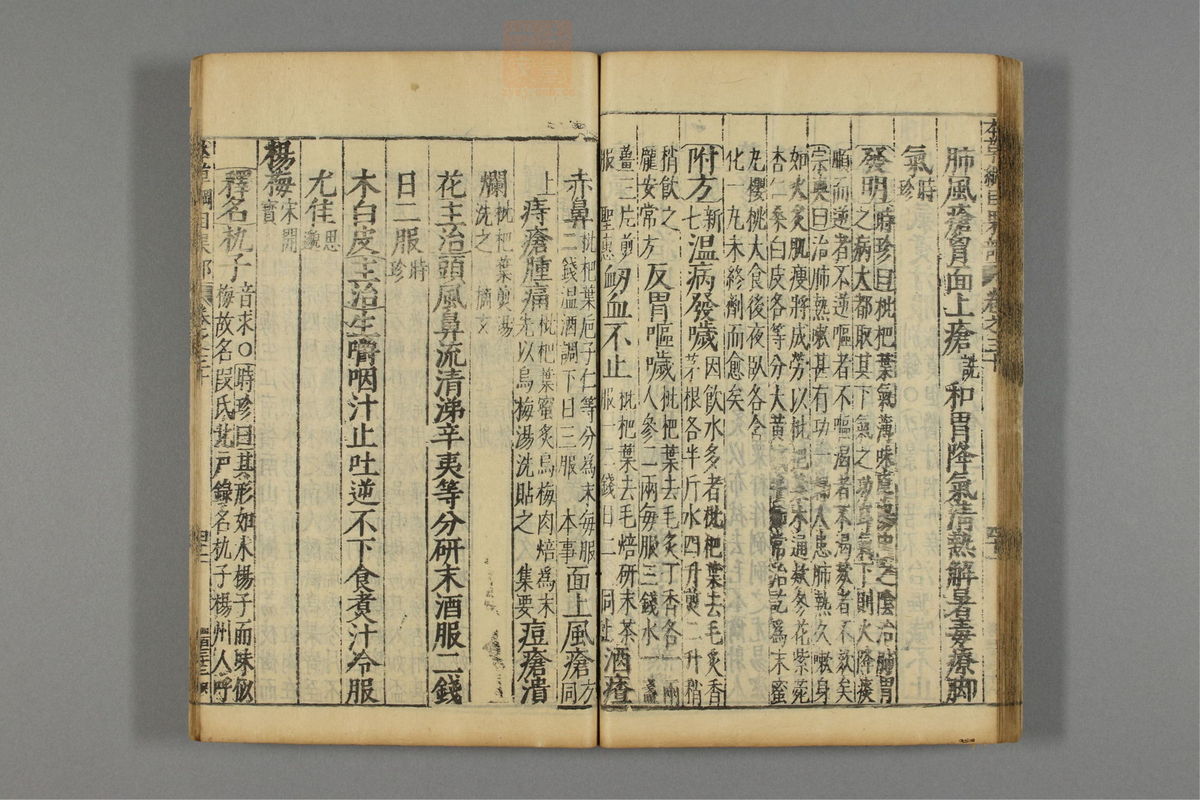 肺風瘡胸面上瘡 詵 和胃降氣清熱解暑毒療脚
氣 時珍
發明 時珍曰枇杷葉氣薄味厚陽中之陰治肺胃
之病大都取其下氣之功耳氣下則火降痰
順而逆者不逆嘔者不嘔渴者不渴欬者不欬矣
宗奭曰治肺熱嗽甚有功一婦人患肺熱久嗽身
如火炙肌瘦將成勞以枇杷葉木通欵冬花紫菀
杏仁桑白皮各等分大黃減半如常治訖爲末蜜
丸櫻桃大食後夜臥各含
化一丸未終劑而愈矣
附方 新七 溫病發噦 因飲水多者枇杷葉去毛炙香
茅根各半斤水四升煎二升稍
稍飲之
龐安常方 反胃嘔噦 枇杷葉去毛炙丁香各一兩
人參二兩每服三錢水一盞
薑三片煎
服 聖惠 衂血不止 枇杷葉去毛焙研末茶
服一二錢日二 同上 酒㾴
赤鼻 枇杷葉巵子仁等分爲末每服
二錢溫酒調下日三服 本事 面上風瘡 方同
上 痔瘡腫痛 枇杷葉蜜炙烏梅肉焙爲末
先以烏梅湯洗貼之 集要 痘瘡潰
爛 枇杷葉煎湯
洗之 摘玄
花主治頭風鼻流清涕辛夷等分研末酒服二錢
日二服 時珍
木白皮主治生嚼咽汁止吐逆不下食煮汁冷服
尤佳 思邈
楊梅 宋開寶
釋名 朹子 音求○時珍曰其形如水楊子而味似
梅故名叚氏北戶錄名朹子楊州人呼